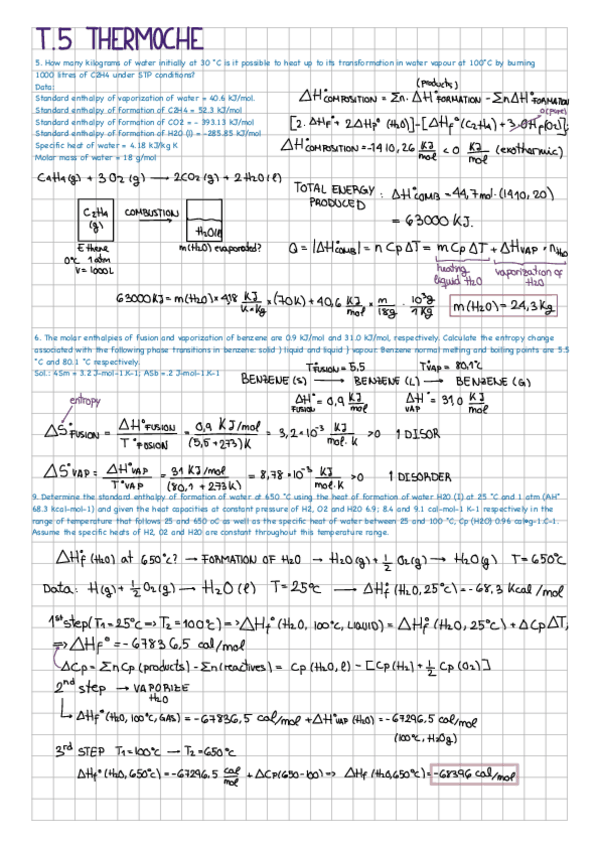 T.5 THERMOCHE
5. How many kilograms of water initially at 30 °C is it possible to heat up to its transformation in water vapour at 100°C by burning
1000 litres of C2H4 under STP conditions?
Data:
Standard enthalpy of vaporization of water = 40.6 kJ/mol.
Standard enthalpy of formation of C2H4 = 52.3 kJ/mol
Standard enthalpy of formation of CO2 = - 393.13 kJ/mol
Standard enthalpy of formation of H2O (l) = -285.85 kJ/mol
Specific heat of water = 4.18 kJ/kg K
Molar mass of water = 18 g/mol
(products)
ΔH°COMPOSITION = Σn. ΔH°FORMATION - ΣnΔH°FORMATION
0(pure)
[2. ΔHf° + 2ΔHf° (H2O)]-[ΔHf°(C2H4) + 3.ΔHf(O2)];
ΔH°COMPOSITION = -1410,26 KJ/mol < 0 KJ/mol (exothermic)
C2H4(g) + 3O2(g) → 2CO2(g) + 2H2O(l)
TOTAL ENERGY PRODUCED : ΔH°COMB = 44,7mol·(1410,20)
= 63000 KJ.
C2H4 (g)
COMBUSTION
H2O(l)
Ethene
0°C 1atm
V = 1000L
m(H2O) evaporated?
Q = |ΔH°COMB| = n CpΔT = m CpΔT + ΔHVAP · nH2O
heating liquid H2O
vaporization of H2O
63000KJ = m(H2O) × 4,18 KJ/K·Kg × (70K) + 40,6 KJ/mol × m/18g · 10³g/1Kg
m(H2O) = 24,3 Kg
6. The molar enthalpies of fusion and vaporization of benzene are 0.9 kJ/mol and 31.0 kJ/mol, respectively. Calculate the entropy change
associated with the following phase transitions in benzene: solid } liquid and liquid } vapour. Benzene normal melting and boiling points are 5.5
°C and 80.1 °C respectively.
Sol.: 4Sm = 3.2 J-mol-1 K-1; ASb = .2 J-mol-1.K-1
TFUSION = 5,5
T°VAP = 80,1°C
BENZENE (S) → BENZENE (L) → BENZENE (G)
entropy
ΔH°FUSION = 0,9 KJ/mol
ΔH°VAP = 31,0 KJ/mol
ΔS°FUSION = ΔH°FUSION / T°FUSION = 0,9 KJ/mol / (5,5+273)K = 3,2·10⁻³ KJ/mol.K >0 1 DISOR
ΔS°VAP = ΔH°VAP / T°VAP = 31 KJ/mol / (80,1 + 273K) = 8,78·10⁻³ KJ/mol.K >0 1 DISORDER
9. Determine the standard enthalpy of formation of water at 650 °C using the heat of formation of water H2O (l) at 25 °C and 1 atm (AH°
68.3 kcal-mol-1) and given the heat capacities at constant pressure of H2, O2 and H2O 6.9; 8.4 and 9.1 cal-mol-1 K-1 respectively in the
range of temperature that follows 25 and 650 oC as well as the specific heat of water between 25 and 100 °C, Cp (H2O) 0.96 cal•g-1.C-1.
Assume the specific heats of H2, O2 and H2O are constant throughout this temperature range.
ΔHf (H2O) at 650°C? → FORMATION OF H2O → H2O(g) + 1/2 O2(g) → H2O(g) T = 650°C
Data: H(g) + 1/2 O2(g) → H2O(l) T = 25°C → ΔHf° (H2O, 25°C) = -68,3 Kcal/mol
1st step (T1 = 25°C ⇒ T2 = 100°C) ⇒ ΔHf° (H2O, 100°C, LIQUID) = ΔHf° (H2O, 25°C) + ΔCpΔT;
⇒ ΔHf° = -67836,5 cal/mol
ΔCp = ΣnCp(products) - Σn(reactives) = Cp(H2O, l) - [Cp(H2) + 1/2 Cp(O2)]
2nd step → VAPORIZE H2O
ΔHf° (H2O, 100°C, GAS) = -67836,5 cal/mol + ΔH°VAP (H2O) = -67296,5 cal/mol
(100°C, H2Og)
3rd STEP T1 = 100°C → T2 = 650°C
ΔHf° (H2O, 650°C) = -67296,5 cal/mol + ΔCp(650-100) ⇒ ΔHf (H2O, 650°C) = -68396 cal/mol